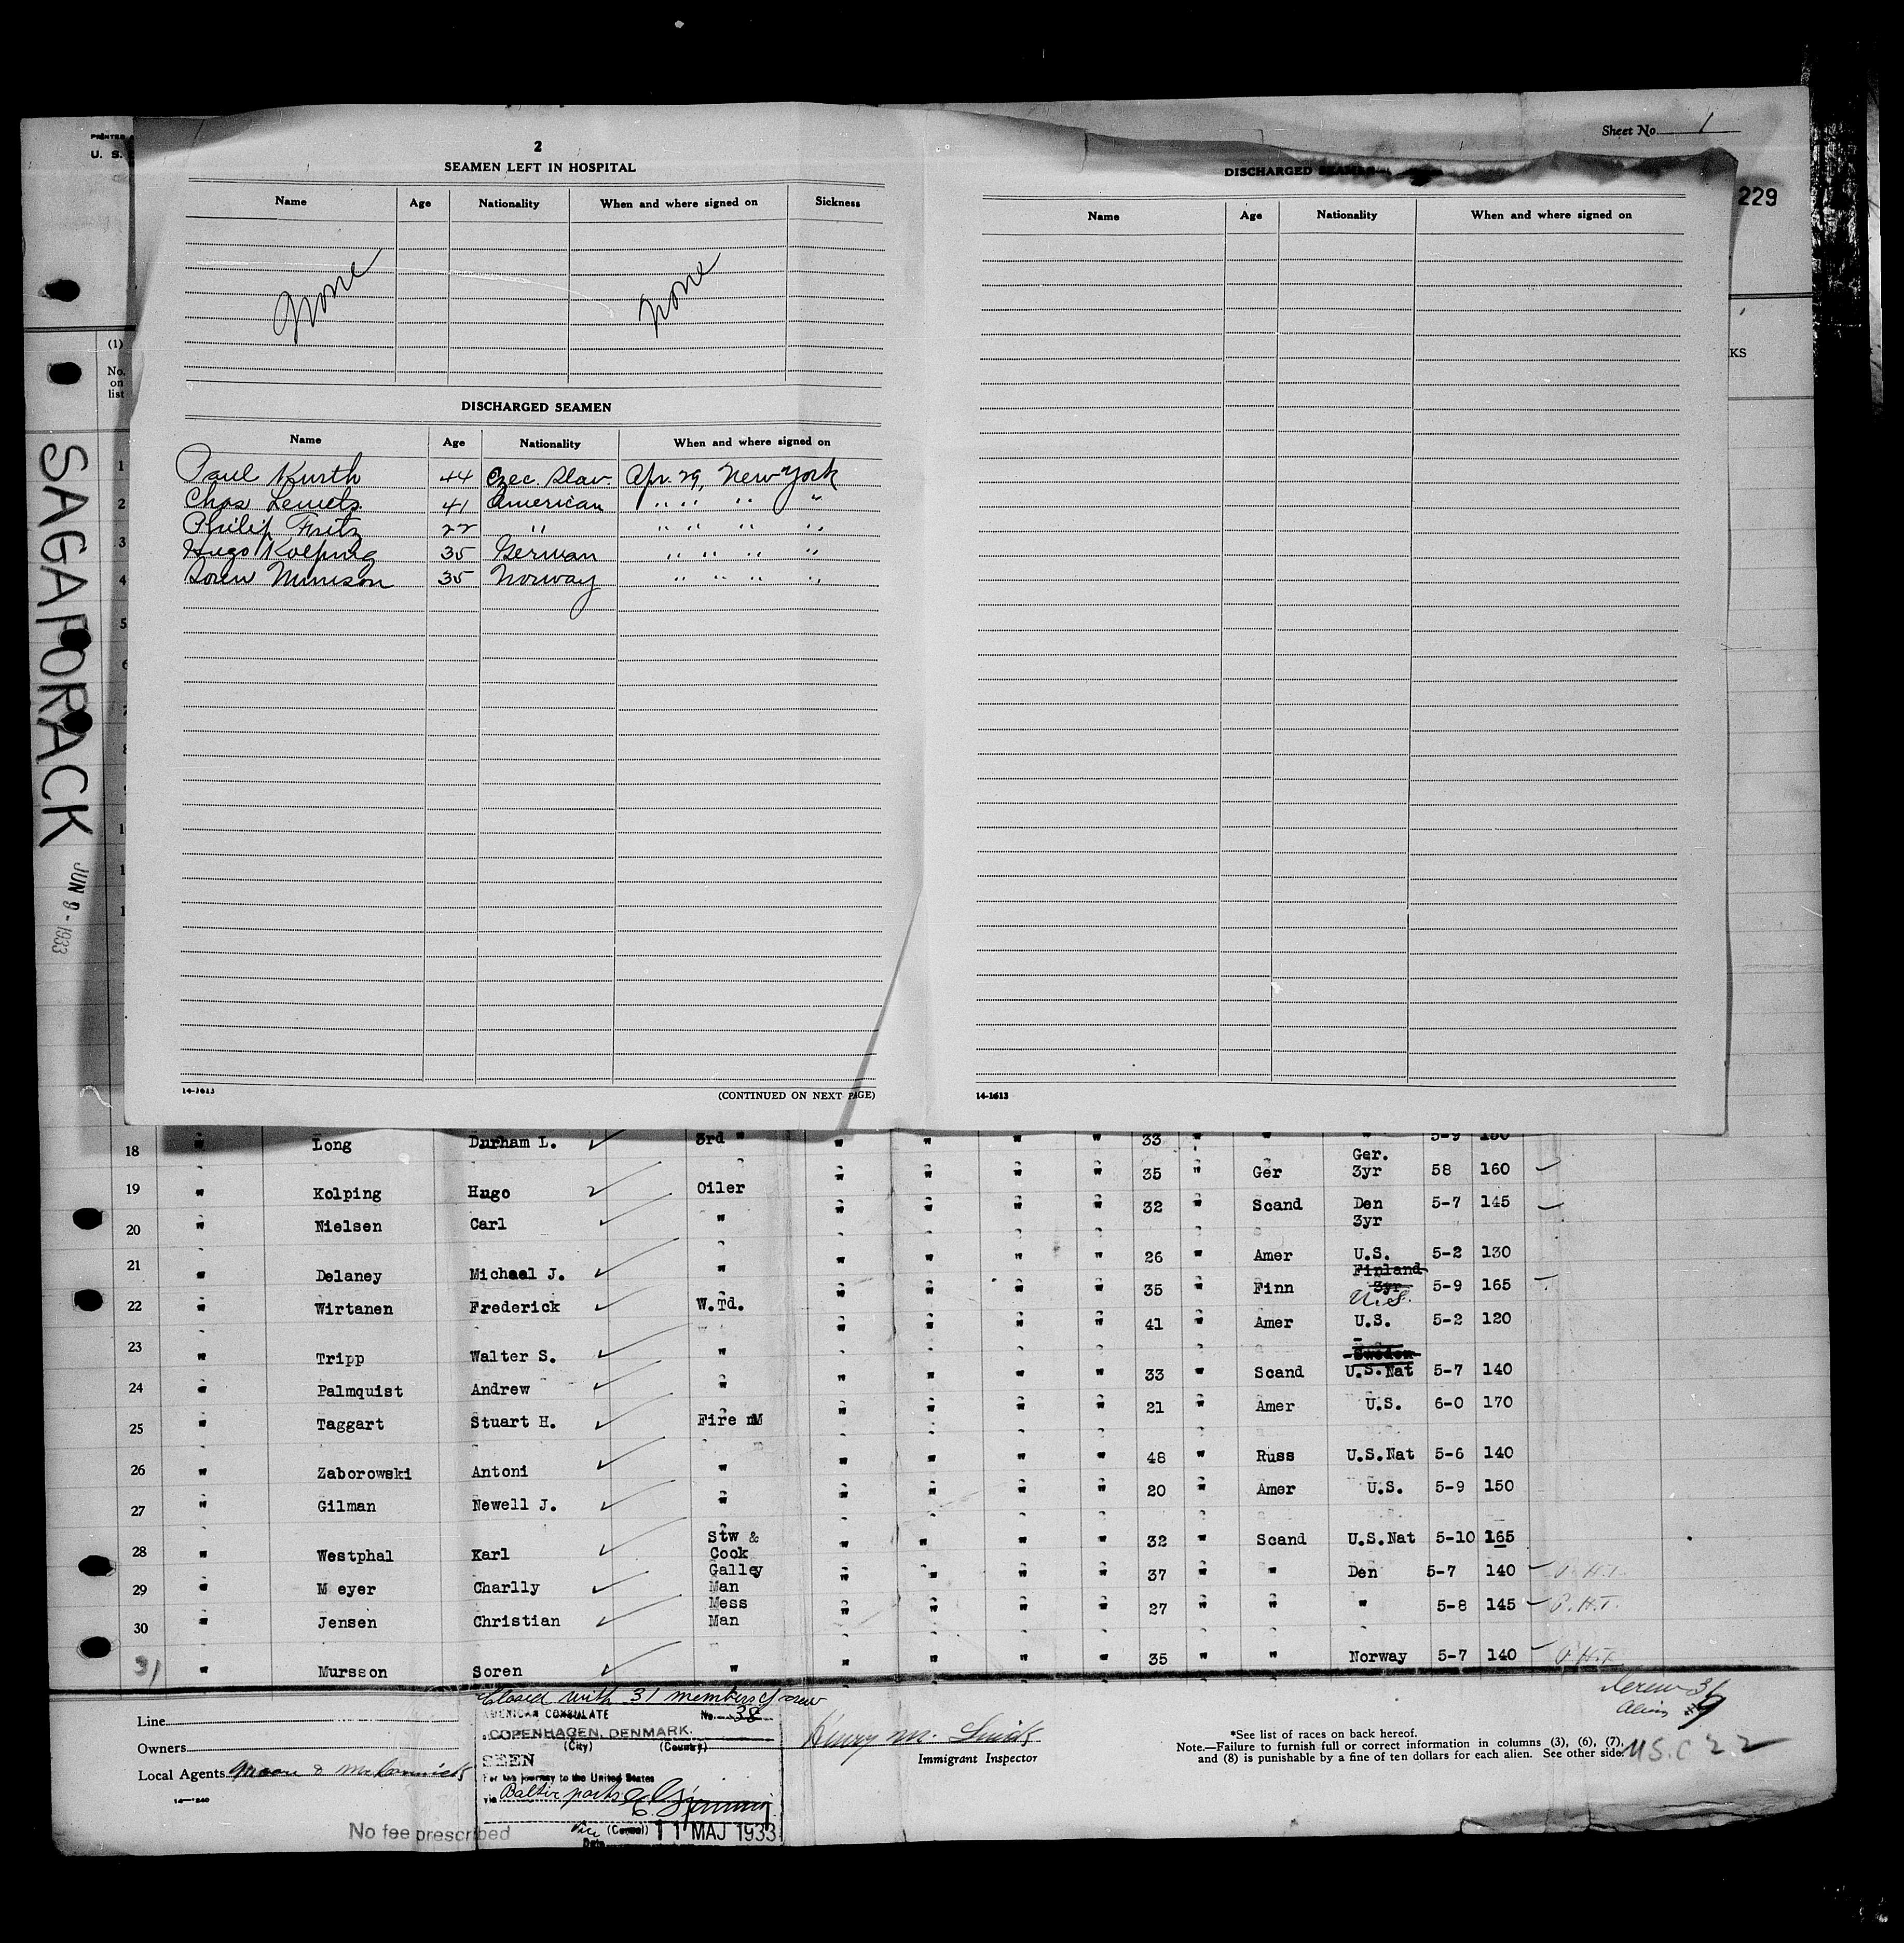 PRINTED
U. S.
Sheet No. 1
229
2
SEAMEN LEFT IN HOSPITAL
Name Age Nationality When and where signed on Sickness
None None
DISCHARGED SEAMEN
Name Age Nationality When and where signed on
Paul Kurth 44 Czec. Slav. Apr. 29, New York
Chas Lemets 41 American " " " "
Philip Fritz 22 " " " " "
Hugo Kolping 35 German " " " "
Soren Munson 35 Norway " " " "
14-1613
(CONTINUED ON NEXT PAGE)
DISCHARGED SEAMEN
Name Age Nationality When and where signed on
14-1613
KS
(1)
No. on list
1
2
3
4
5
6
SAGAPORACK
JUN 9 - 1933
18 " Long Durham L. 3rd " " " " " 33 " " " 5-9 150
19 " Kolping Hugo Oiler " " " " 35 " Ger Ger. 3yr 58 160
20 " Nielsen Carl " " " " " 32 " Scand Den 3yr 5-7 145
21 " Delaney Michael J. " " " " " 26 " Amer U.S. 5-2 130
22 " Wirtanen Frederick W.Td. " " " " 35 " Finn Finland 3yr U.S. 5-9 165
23 " Tripp Walter S. " " " " " 41 " Amer U.S. 5-2 120
24 " Palmquist Andrew " " " " " 33 " Scand Sweden U.S.Nat 5-7 140
25 " Taggart Stuart H. Fire M " " " " 21 " Amer U.S. 6-0 170
26 " Zaborowski Antoni " " " " " 48 " Russ U.S.Nat 5-6 140
27 " Gilman Newell J. " " " " " 20 " Amer U.S. 5-9 150
28 " Westphal Karl Stw & Cook " " " " 32 " Scand U.S.Nat 5-10 165
29 " Meyer Charlly Galley Man " " " " 37 " " Den 5-7 140 P.H.T.
30 " Jensen Christian Mess Man " " " " 27 " " " 5-8 145 P.H.T.
31 " Mursson Soren " " " " " 35 " " Norway 5-7 140 P.H.T.
Closed with 31 members of crew
Crew 31
Alien 9
U.S.C 22
Line
Owners
Local Agents Moore & McCormick
14-840
No fee prescribed
AMERICAN CONSULATE No. 38
COPENHAGEN, DENMARK.
(City) (Country)
SEEN
For the journey to the United States
via Baltic ports
Vice (Consul)
Date 11 MAJ 1933
Henry M.
Immigrant Inspector
*See list of races on back hereof.
Note.—Failure to furnish full or correct information in columns (3), (6), (7),
and (8) is punishable by a fine of ten dollars for each alien. See other side.